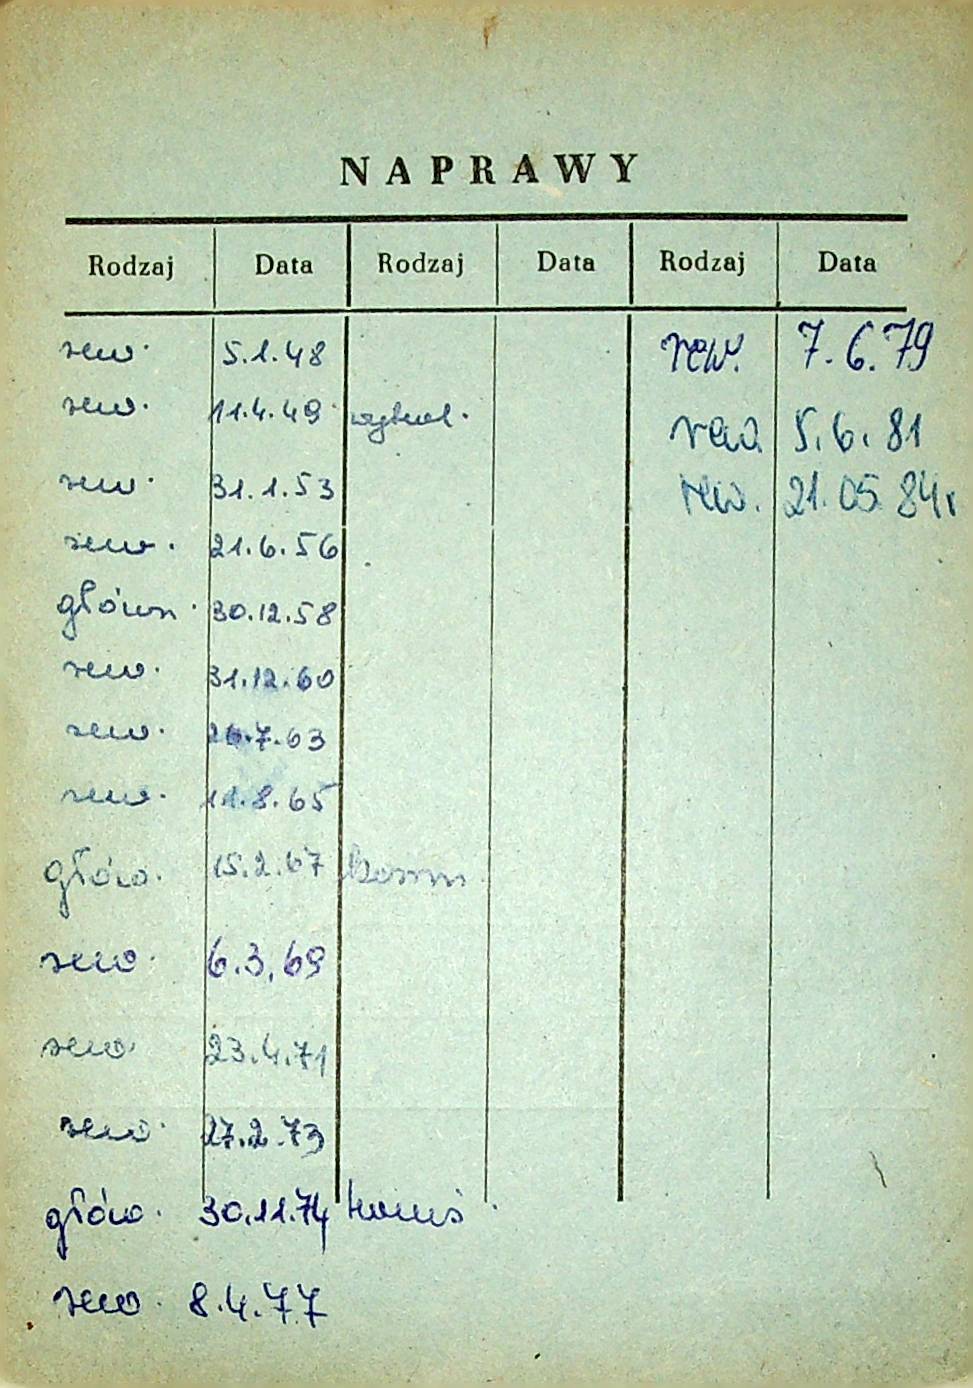 NAPRAWY
Rodzaj Data Rodzaj Data Rodzaj Data
rew. 5.1.48 rew. 7.6.79
rew. 11.4.49 rew. 5.6.81
rew. 31.1.53 rew. 21.05.84r
rew. 21.6.56
główn. 30.12.58
rew. 31.12.60
rew. 26.7.63
rew. 11.8.65
głów. 15.2.67
rew. 6.3.69
rew. 23.4.71
rew. 27.2.73
głów. 30.11.74
rew. 8.4.77